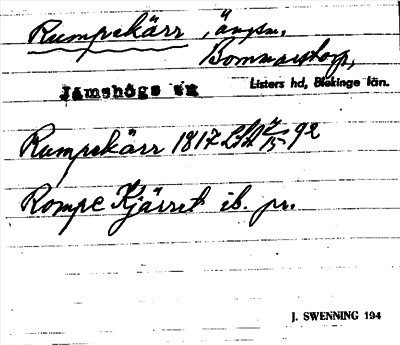 Rumpskärr, ängsm,
Bommarstorp,
Jämshögs sn Listers hd, Blekinge län.
Rumpskärr 1817 LSA 7/15 92
Rompe Kjärret ib. pr.
J. SWENNING 194